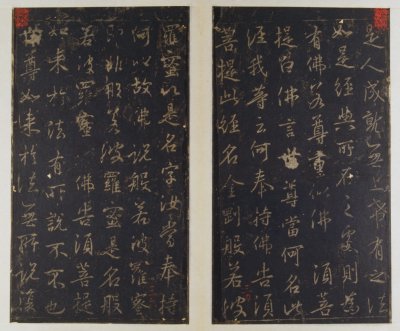 是人成就無上希有之法
如是經典所在之處則為
有佛若尊重似佛 須菩
提白佛言世尊當何名此
經我等云何奉持佛告須
菩提此經名金剛般若波
羅蜜以是名字汝當奉持
何以故佛說般若波羅蜜
即非般若波羅蜜是名般
若波羅蜜 佛告須菩提
如來於法有所說不不也
世尊如來於法無所說須